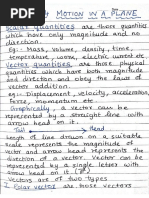 MOTION IN A PLANE
Scalar quantities are those quantities
which have only magnitude and no
direction.
Eg:- Mass, volume, density, time,
temperature, electric current etc.
Vector quantities are those physical
quantities which have both magnitude
and direction and obey the laws of
vector addition.
Eg:- Displacement, velocity, acceleration,
force, momentum etc.
Graphically, vector can be
represented by a straight line with
arrow head on it.
Tail Head
Length of line drawn on a suitable
scale represents the magnitude of
vector and arrow head represents the
direction of a vector. Vector can be
represented by a single letter with
arrow head on it
Vectors are of two types
1. Polar vector are those vectors